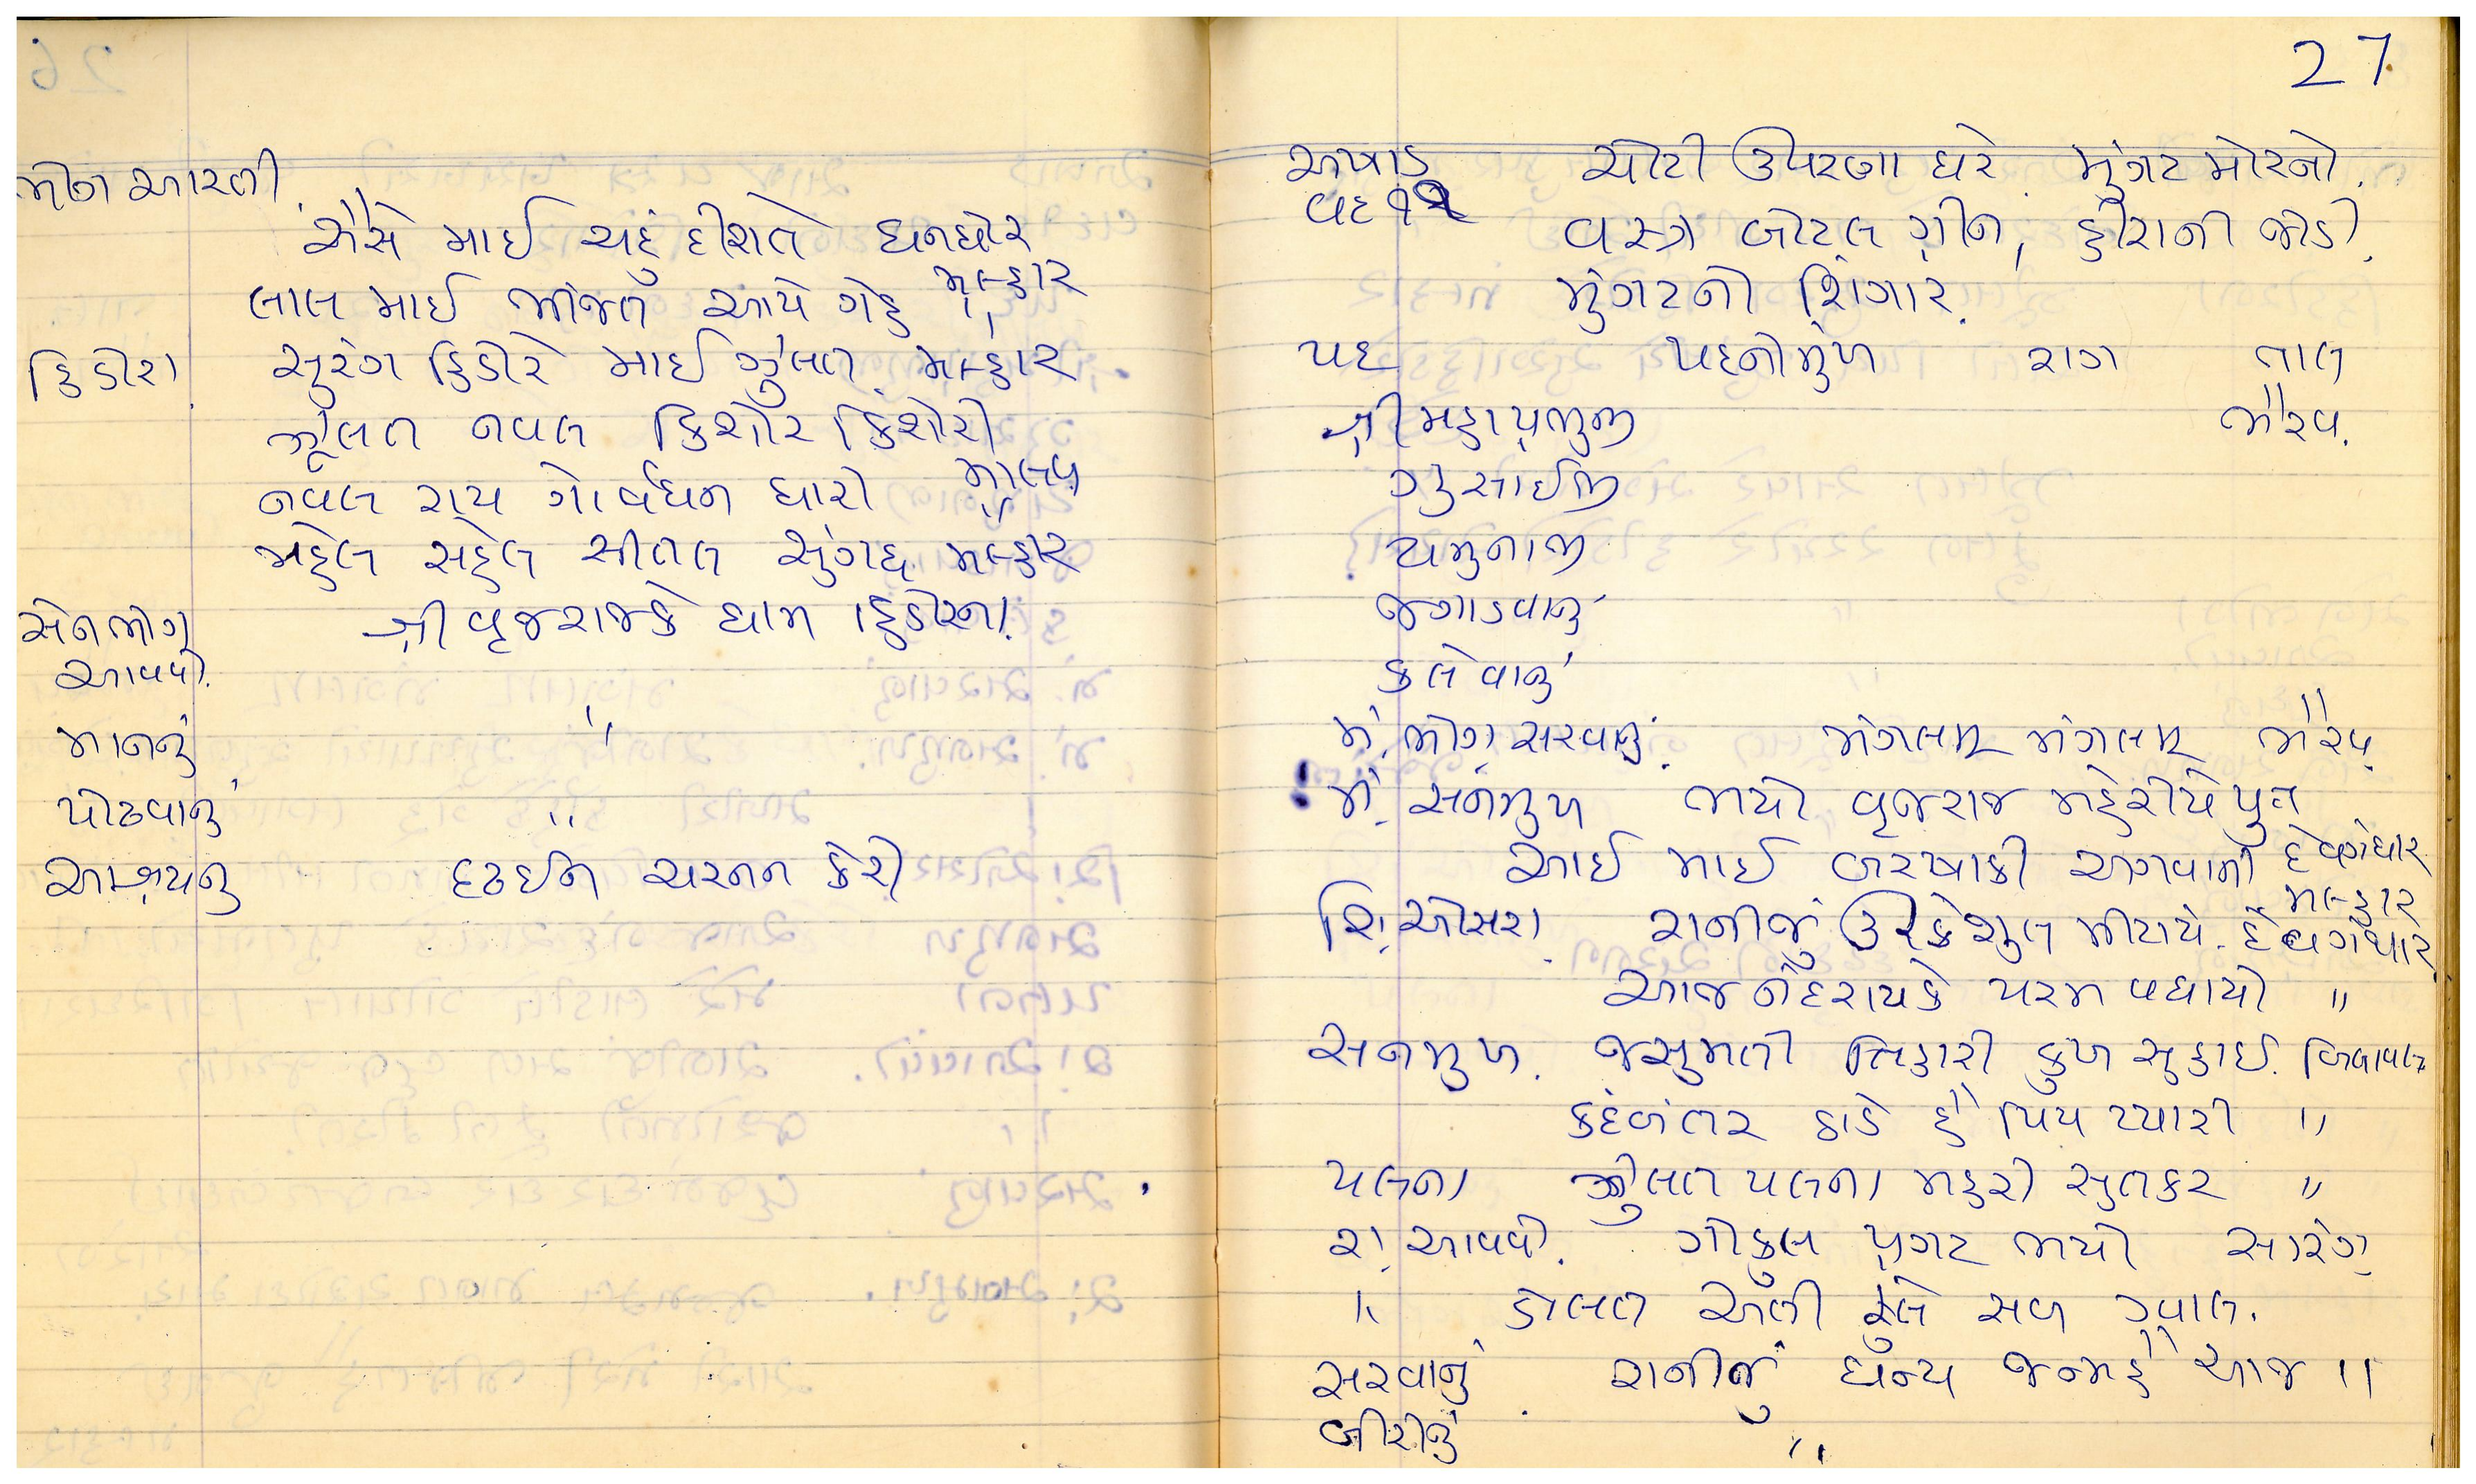 ભોગ આરતી
ઐસે માઈ ચહું દીશતે ઘનઘોર
મલ્હાર
લાલ માઈ ભીંજત આયે ગેહ "
હિંડોરા સુરંગ હિંડોરે માઈ ઝુલત મલ્હાર
ઝુલત નવલ કિશોર કિશોરી
માલવ
નવલ રાય ગોર્વધન ધારી "
મહેલ સહેલ સીતલ સુંગધ મલ્હાર
સેનભોગ શ્રી વૃજરાજકે ધામ હિંડોરના.
આવવો.
માનનું "
પોઢવાનું "
આશ્રયનું દઢઈન ચરનન કેરી
27
અષાડ ચોટી ઉપરણા ઘેરે મુગટ મોરનો.
વદ ૧૨
વસ્ત્ર બોટલ ગ્રીન, હીરાની જોડી.
મુંગટનો શિંગાર.
પદ પદનીમુખ રાગ તાલ
શ્રી મહાપ્રભુજી ભૈરવ.
ગુસાઈજી
યમુનાજી
જગાડવાનું
કલેવાનું
મં. ભોગ સરવાનું. મંગલમ મંગલમ ભૈરવ
મં. સનમુખ ભયો વૃજરાજ મહેરીયે પુત્ર
દેવગંધાર
આઈ માઈ બરષાકી અગવાની
મલ્હાર
શિં. ઓસરા. રાનીજું ઉરકે શુલ મીટાયે. દેવગંધાર
આજ નંદરાયકે પરમ વધાયો "
સનમુખ. જસુમતી તિહારી કુખ સુહાઈ. બિલાવલ
કદંબંતર ઠાડે હૈ પિય પ્યારી "
પલના ઝુલત પલના મહરી સુતકર "
રા. આવવો. ગોકુલ પ્રગટ ભયો સારંગ
" ડોલત અલી સબ ગ્વાલ.
સરવાનું રાનીજું ધન્ય જન્મહૈ આજ "
બીરીનું "